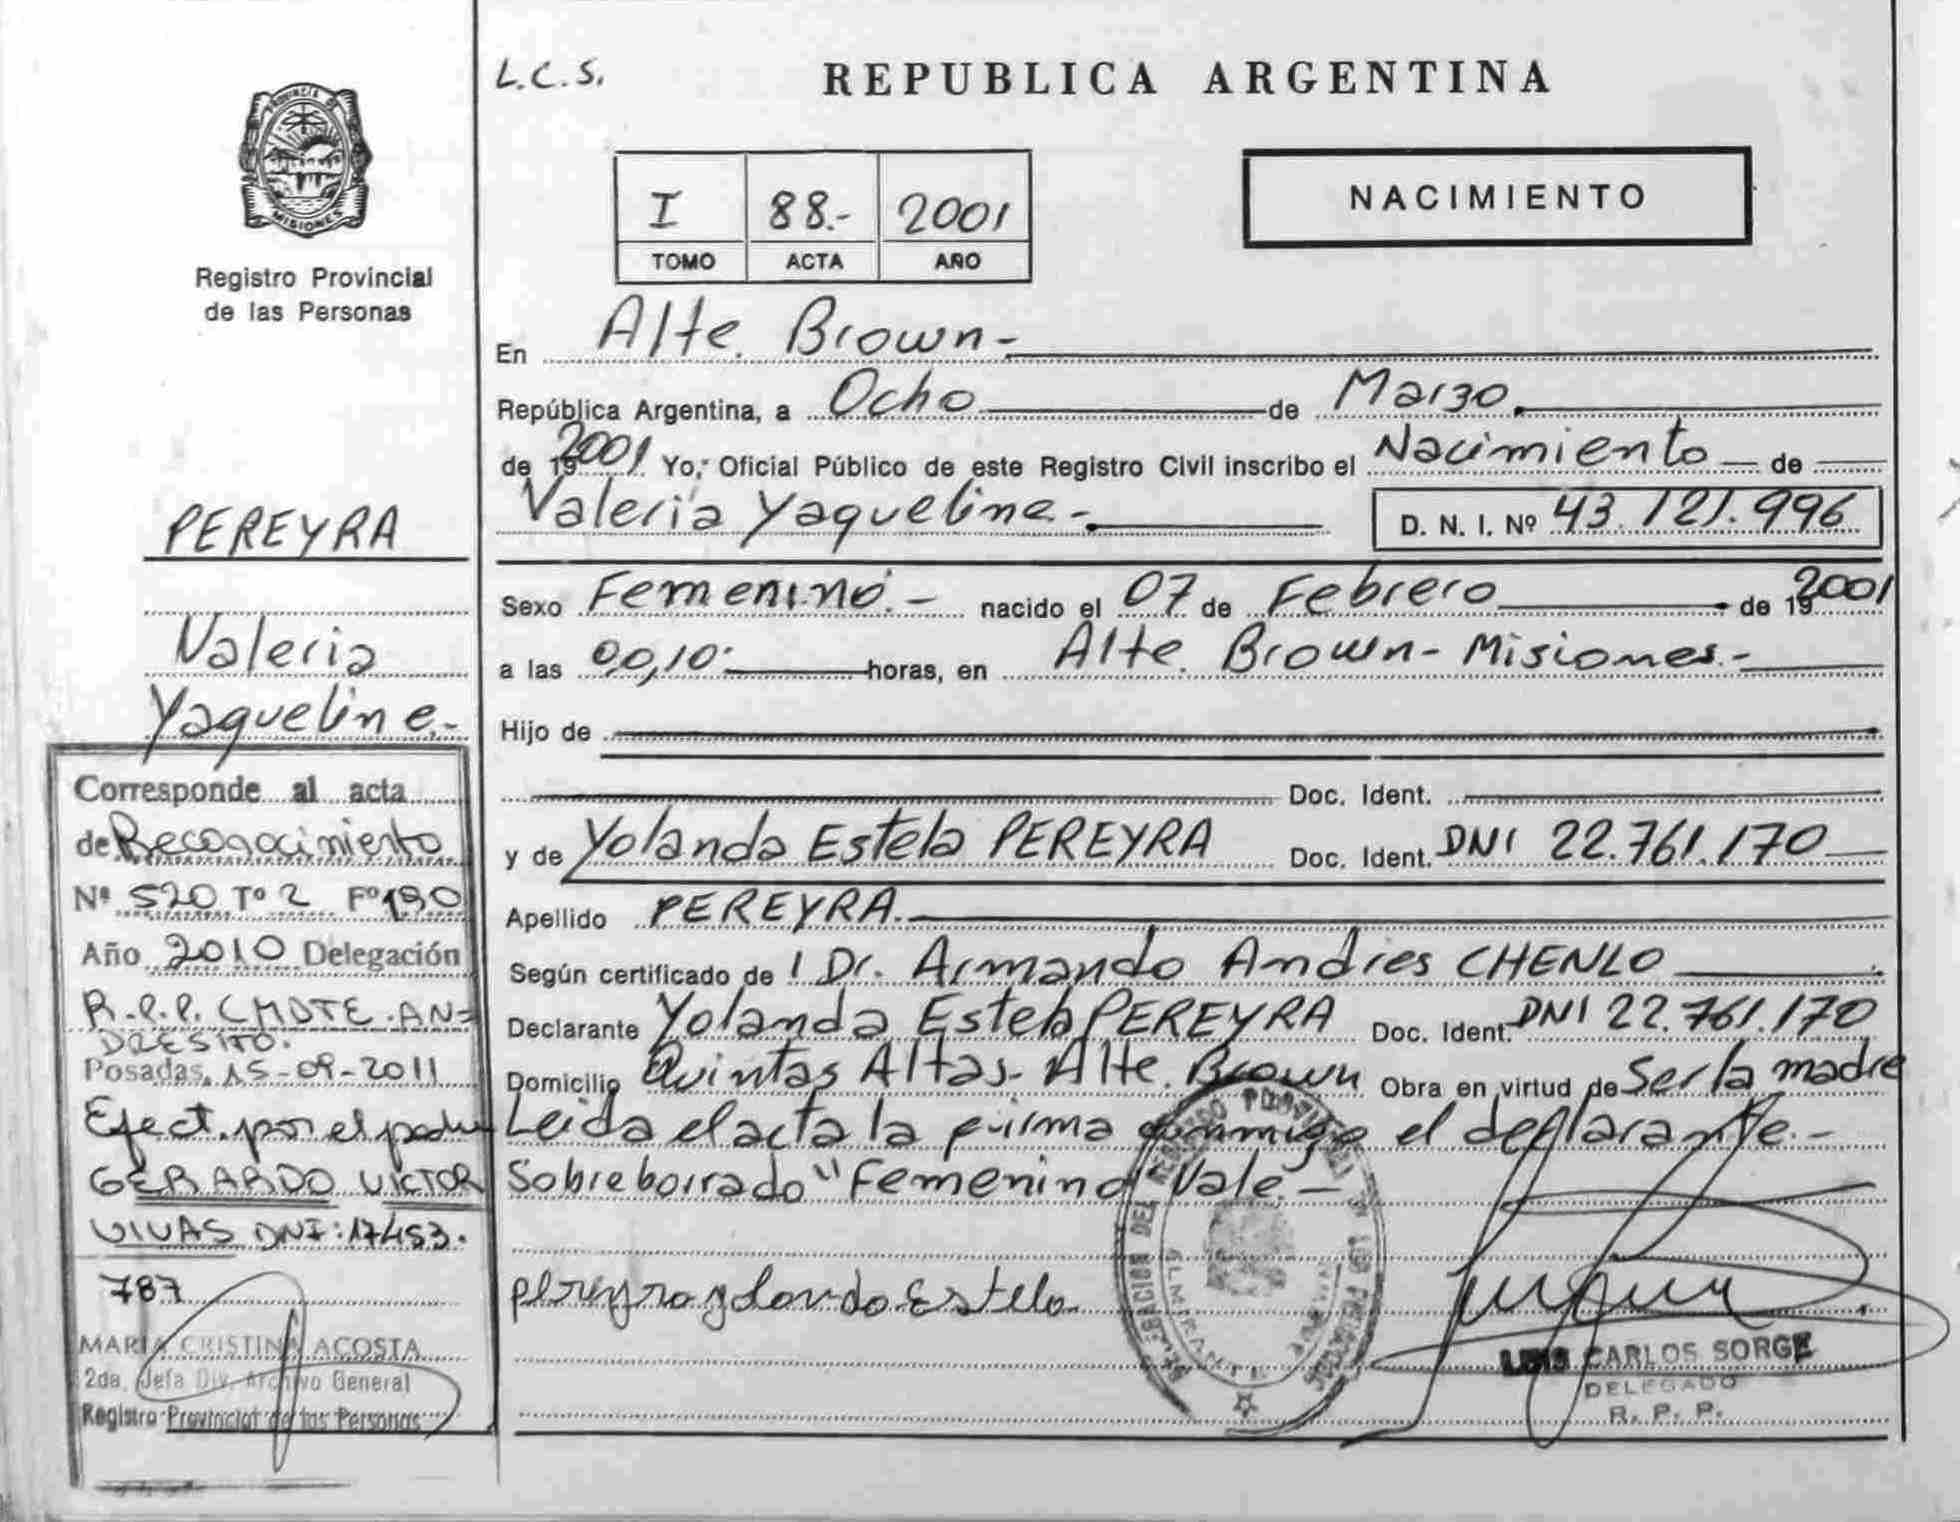 PROVINCIA DE
MISIONES
Registro Provincial
de las Personas
PEREYRA
Valeria
Yaqueline.-
Corresponde al acta
de Reconocimiento
Nº 520 Tº 2 Fº 190
Año 2010 Delegación
R.P.P. CMDTE. AN=
DRESITO.
Posadas, 15-09-2011
Efect. por el padre
GERARDO VICTOR
VIVAS DNI: 17453.
787
MARIA CRISTINA ACOSTA
2da. Jefa Div. Archivo General
Registro Provincial de las Personas
L.C.S.
REPUBLICA ARGENTINA
I 88.- 2001
TOMO ACTA AÑO
NACIMIENTO
En Alte. Brown-
República Argentina, a Ocho de Marzo
de 192001 Yo, Oficial Público de este Registro Civil inscribo el Nacimiento de
Valeria Yaqueline.- D. N. I. Nº 43.121.996
Sexo Femenino.- nacido el 07 de Febrero de 192001
a las 00,10 horas, en Alte. Brown- Misiones.-
Hijo de
Doc. Ident.
y de Yolanda Estela PEREYRA Doc. Ident. DNI 22.761.170
Apellido PEREYRA.
Según certificado de l Dr. Armando Andres CHENLO
Declarante Yolanda Estela PEREYRA Doc. Ident. DNI 22.761.170
Domicilio Quintas Altas- Alte. Brown Obra en virtud de Ser la madre
Leida el acta la firma conmigo el declarante.-
Sobreborrado "Femenino" Vale-
pereyra yolanda Estela
LUIS CARLOS SORGE
DELEGADO
R. P. P.